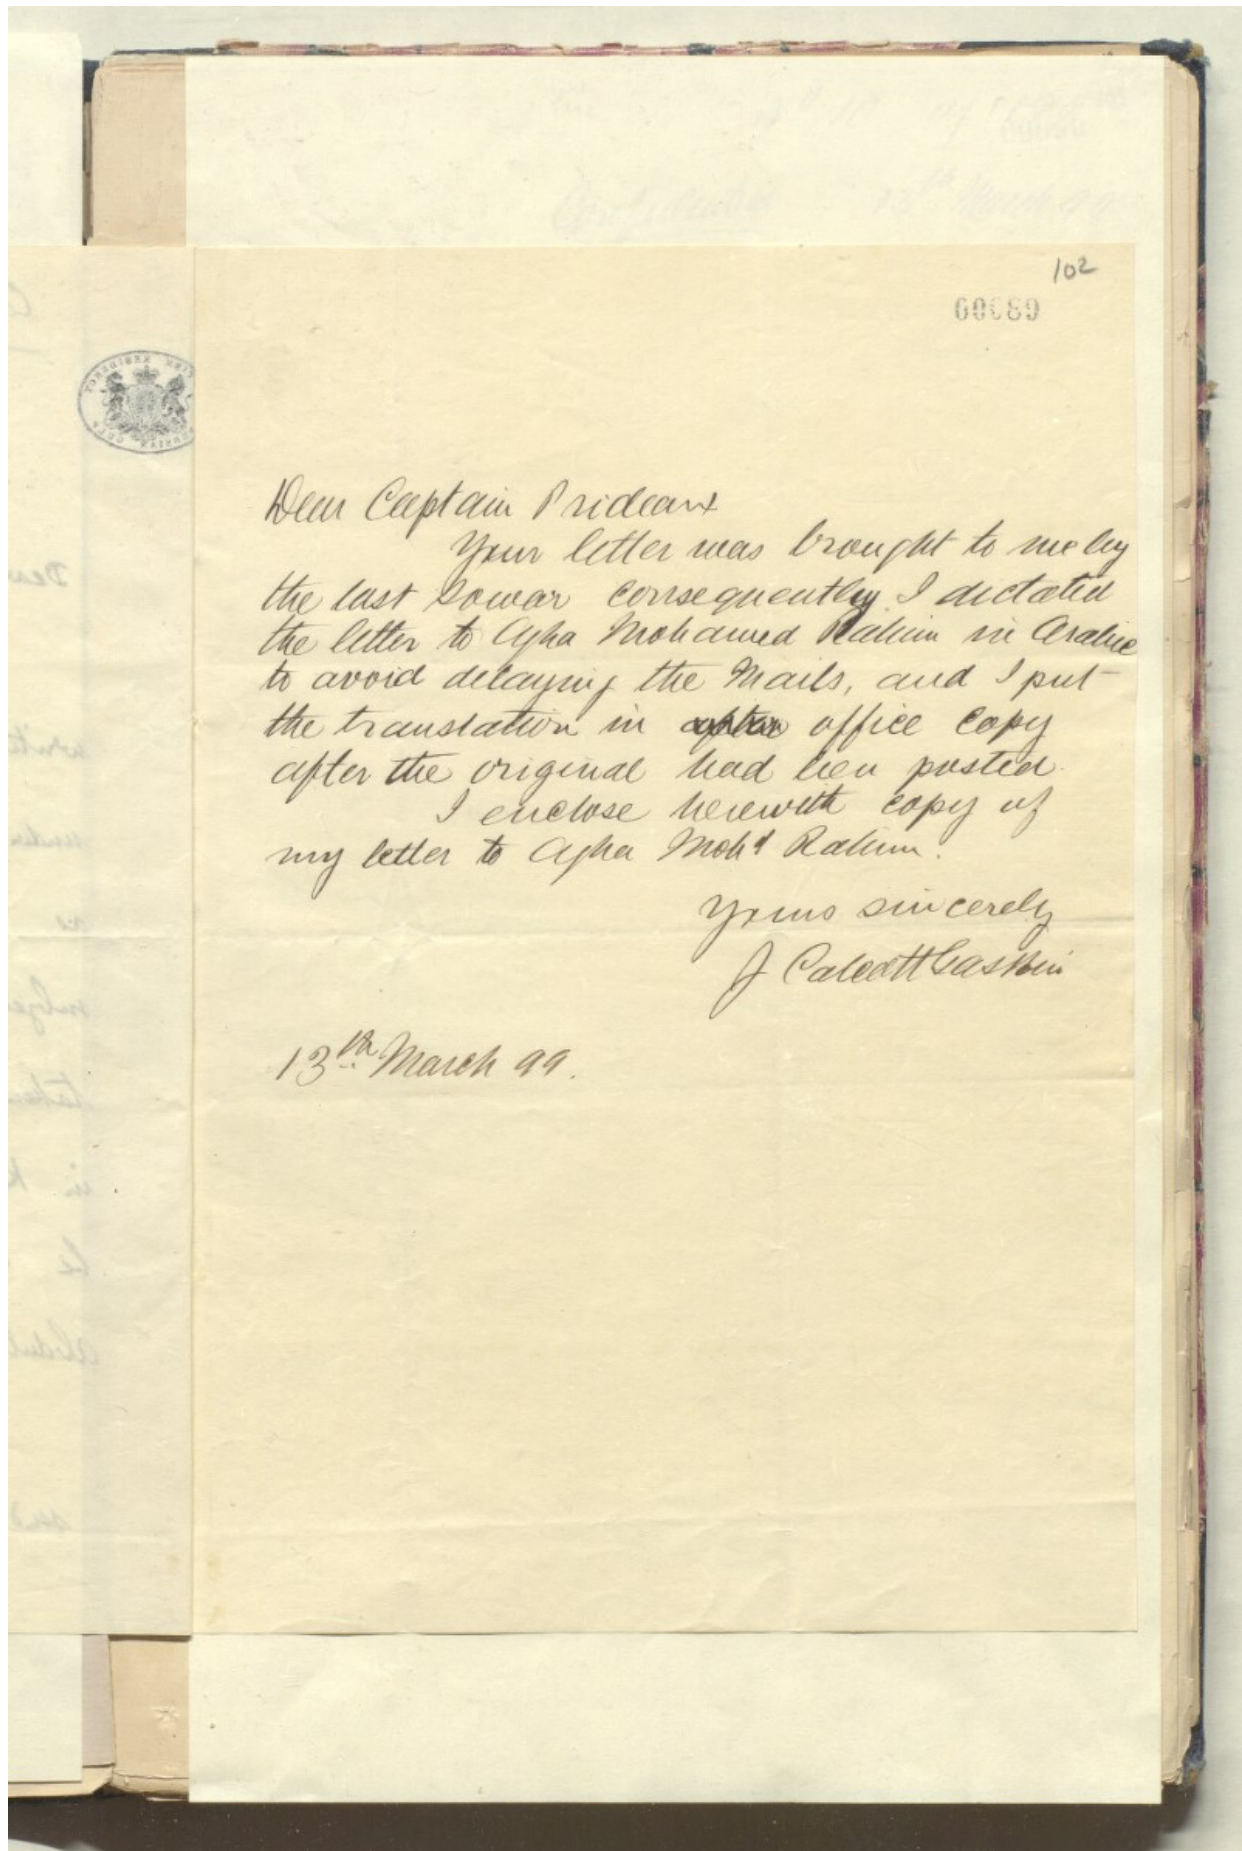 102
Dear Captain Prideaux
Your letter was brought to me by
the last Sowar consequently I dictated
the letter to Agha Mohamed Rahim in Arabic
to avoid delaying the Mails, and I put
the translation in office copy
after the original had been posted.
I enclose herewith copy of
my letter to Agha Mohd Rahim.
Yours sincerely
J Calcott Gaskin
13th March 99.